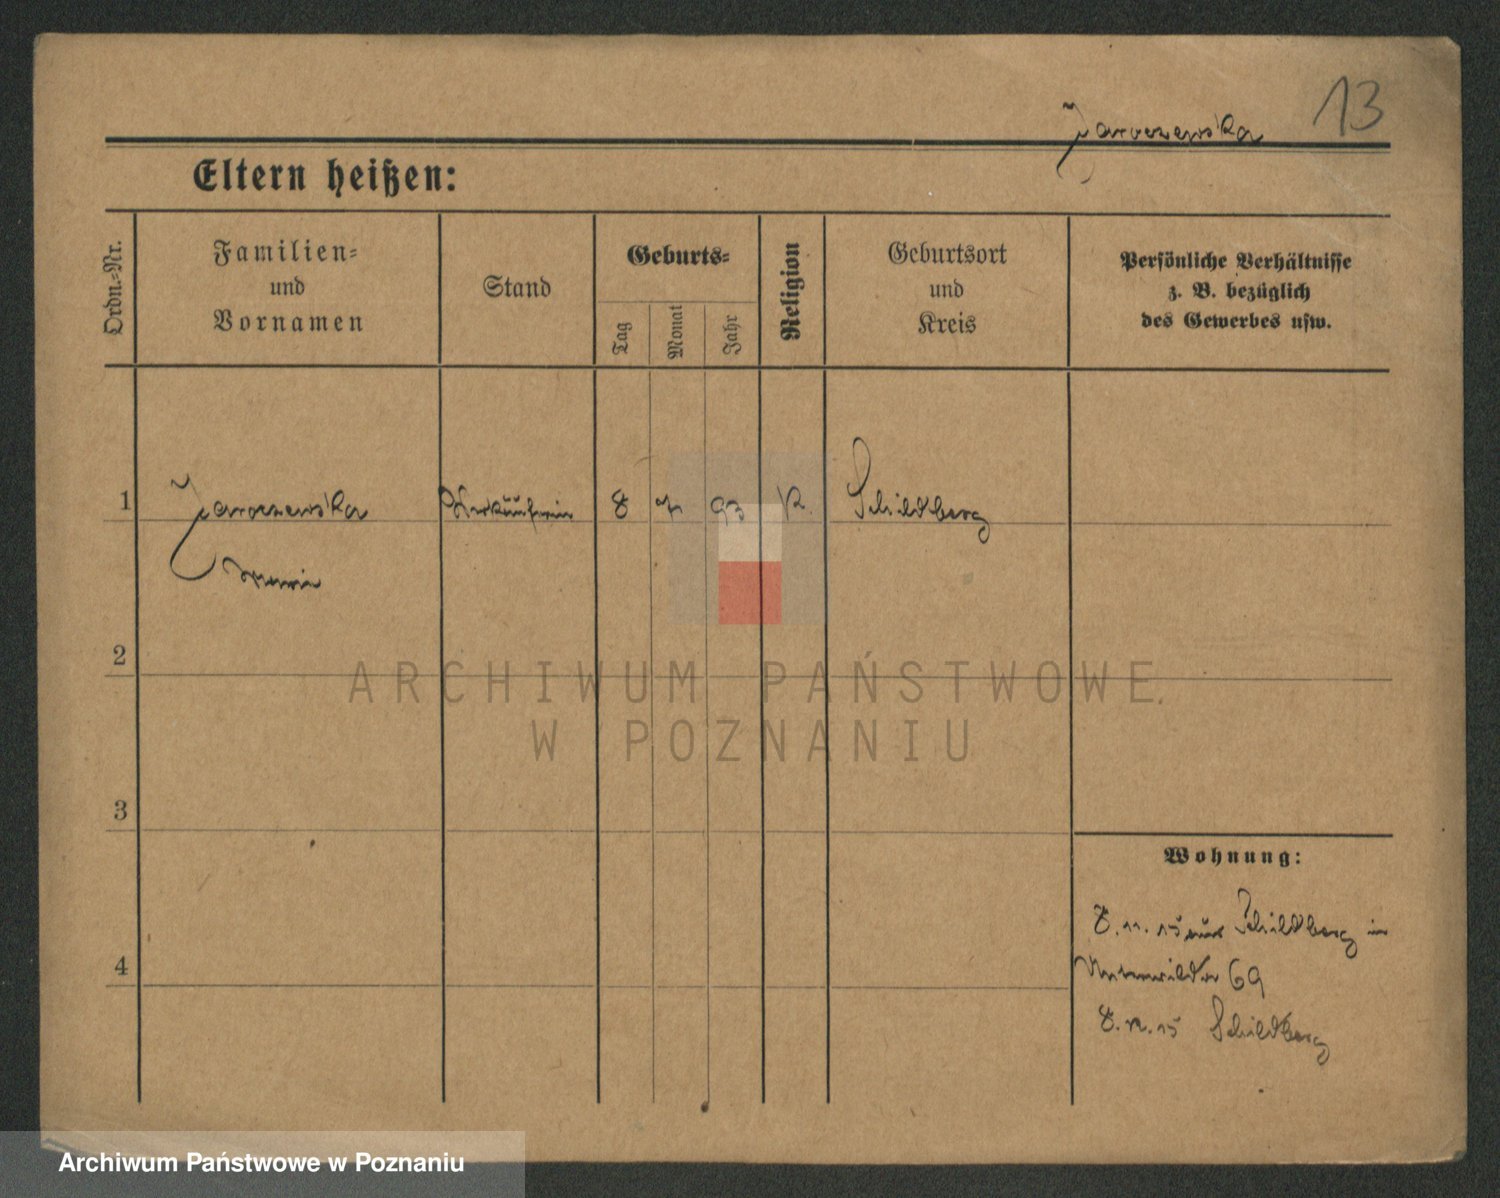 13
Jaroszewska
Eltern heißen:
Ordn.-Nr.
Familien-
und
Vornamen
Stand
Geburts-
Tag
Monat
Jahr
Religion
Geburtsort
und
Kreis
Persönliche Verhältnisse
z. B. bezüglich
des Gewerbes usw.
1 Jaroszewska Verkäuferin 8 7 93 K. Schildberg
2
3
4
Wohnung:
8.11.15 aus Schildberg in
69
8.12.15 Schildberg
ARCHIWUM PAŃSTWOWE
W POZNANIU
Archiwum Państwowe w Poznaniu